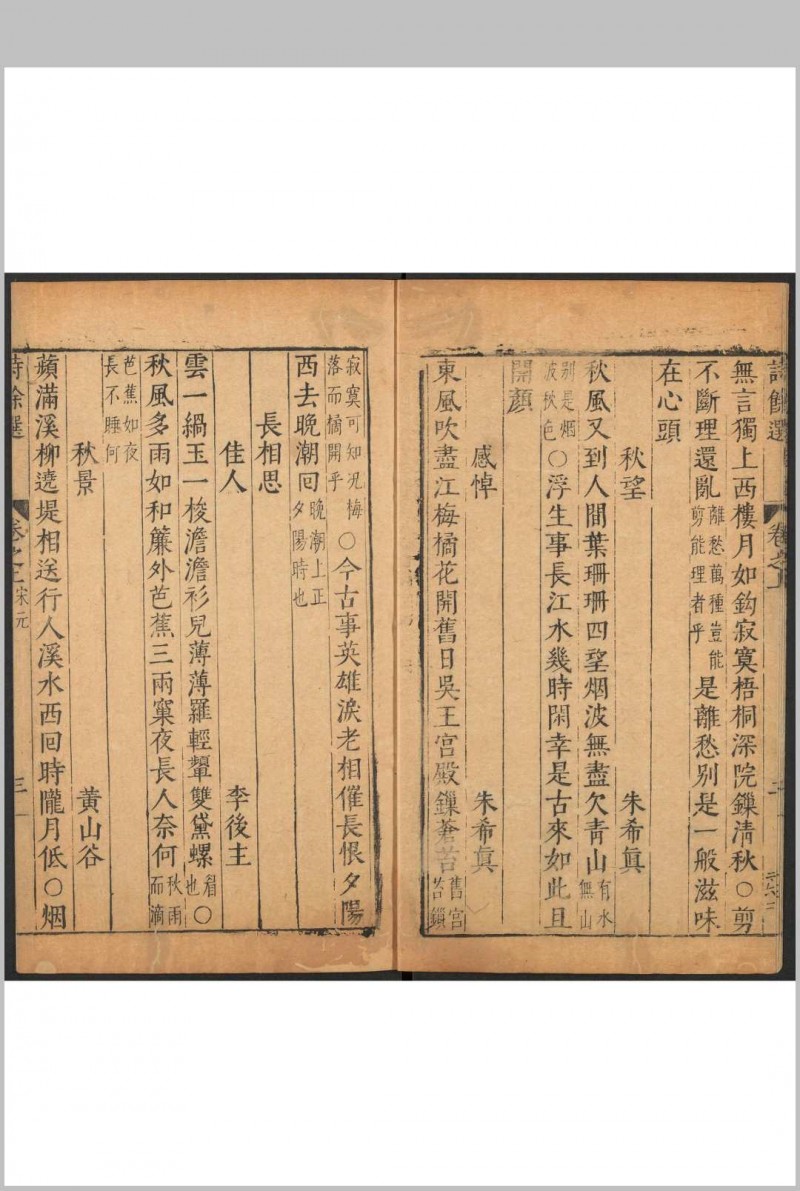 無言獨上西樓月如鈎寂寞梧桐深院鏁清秋〇剪
不斷理還亂離愁萬種豈能剪能理者乎是離愁别是一般滋味
在心頭
秋望 朱希眞
秋風又到人間葉珊珊四望烟波無盡欠青山有水無山
别是烟波秋色〇浮生事長江水幾時閑幸是古來如此且
開顏
感悼 朱希眞
東風吹盡江梅橘花開舊日吳王宮殿鏁蒼苔舊宮苔鎻
寂寞可知况梅落而橘開乎〇今古事英雄淚老相催長恨夕陽
西去晚潮回晚潮上正夕陽時也
長相思
佳人 李後主
雲一緺玉一梭澹澹衫兒薄薄羅輕顰雙黛螺眉也〇
秋風多雨如和簾外芭蕉三兩窠夜長人奈何秋雨而滴
芭蕉如夜長不睡何
秋景 黃山谷
蘋滿溪柳遶堤相送行人溪水西回時隴月低〇烟
詩餘選 卷之二 宋元 三